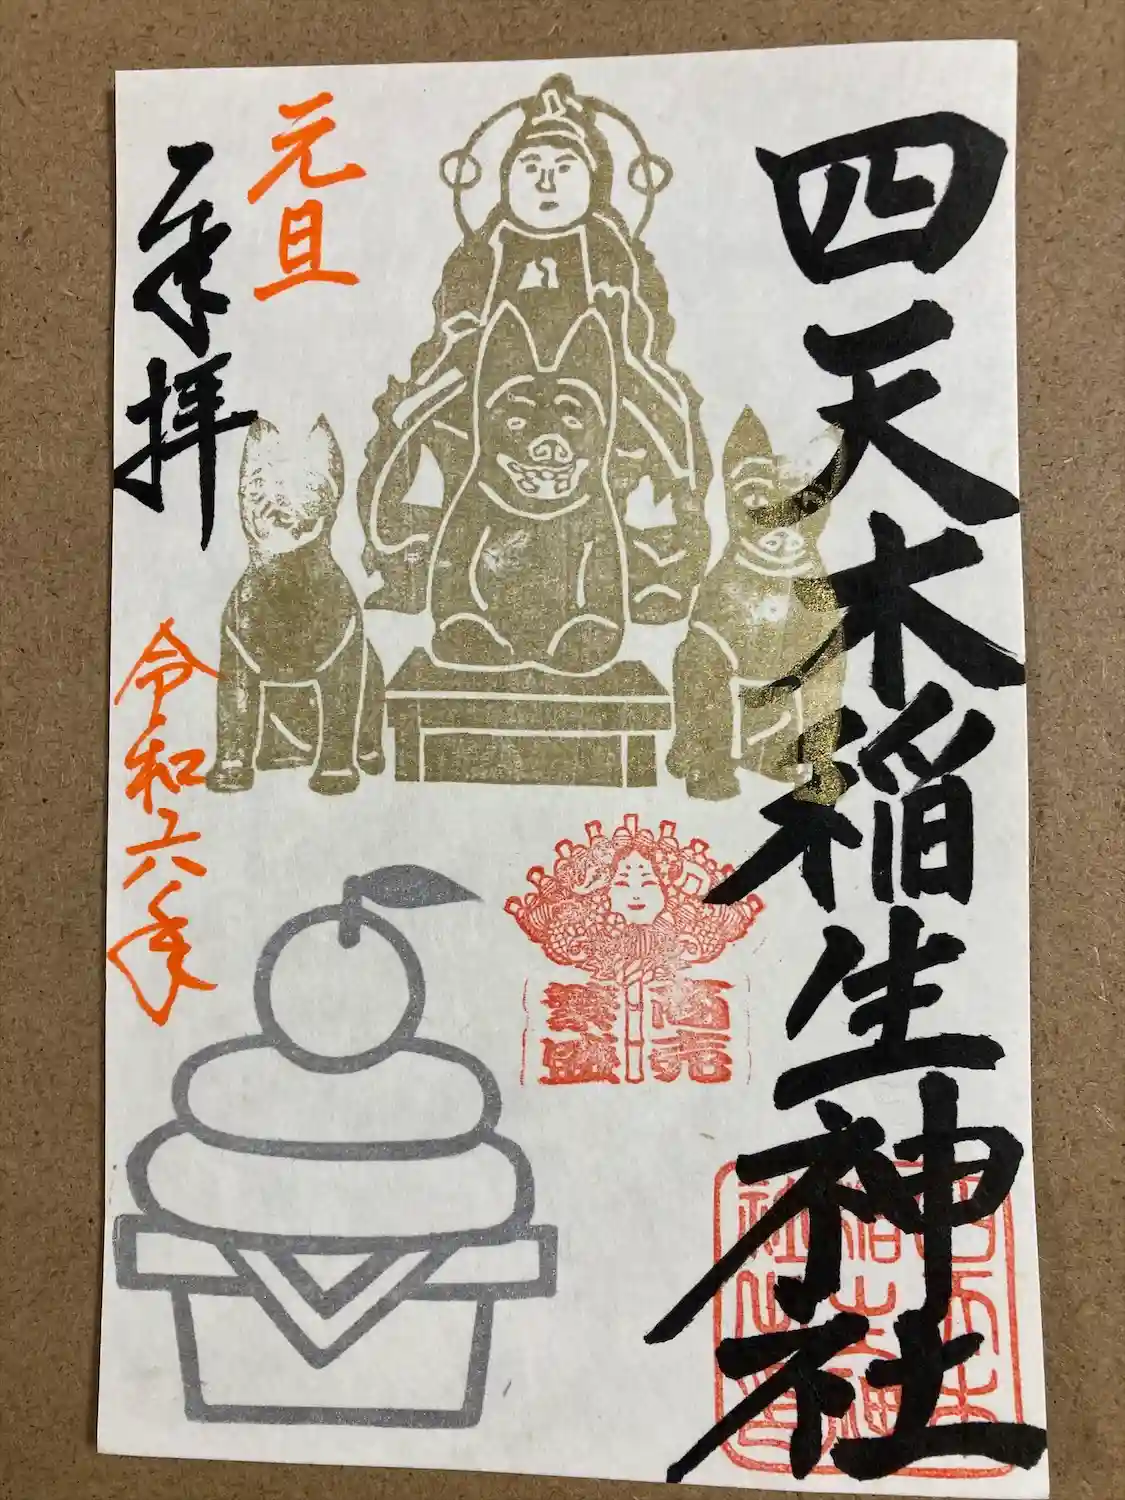 四天木稲生神社
商売
繁盛
四天木
稲生神
社之印
元旦
奉拝
令和六年